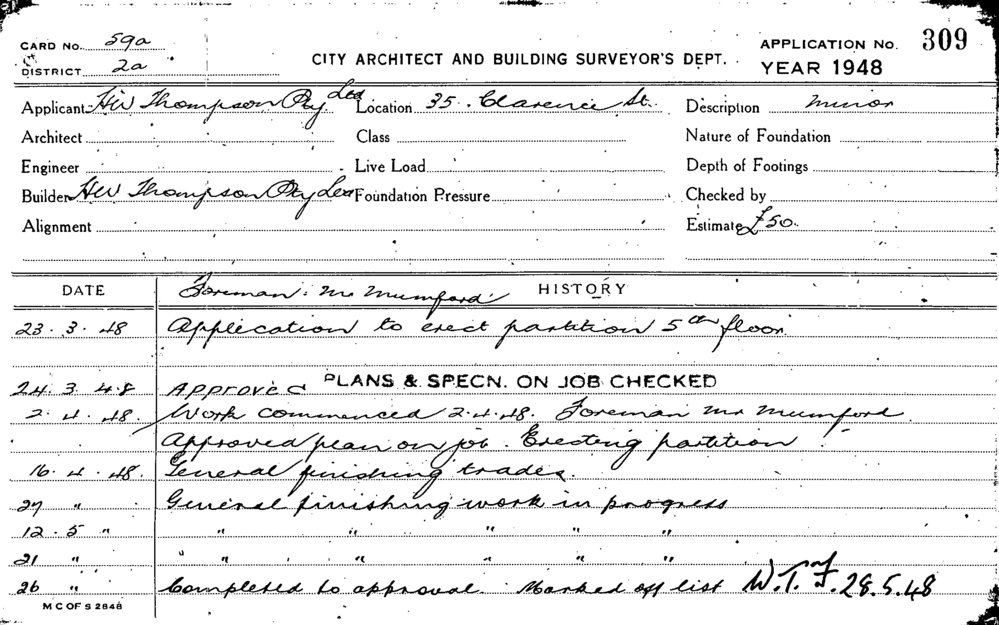 CARD No. 59a
DISTRICT 2a
CITY ARCHITECT AND BUILDING SURVEYOR'S DEPT.
APPLICATION No. 309
YEAR 1948
Applicant HW Thompson Pty Ltd Location 35 Clarence St. Description minor
Architect Class Nature of Foundation
Engineer Live Load Depth of Footings
Builder HW Thompson Pty Ltd Foundation Pressure Checked by
Alignment Estimate £50.
DATE Foreman: Mr Mumford HISTORY
23.3.48 Application to erect partition 5th floor
24.3.48 Approved PLANS & SPECN. ON JOB CHECKED
2.4.48. Work commenced 2.4.48. Foreman Mr Mumford
Approved plan on job. Erecting partition
16.4.48. General finishing trades.
27 " General finishing work in progress
12.5 " " " " " "
21 " " " " " " "
26 " Completed to approval. Marked off list 28.5.48
M C OF S 2848